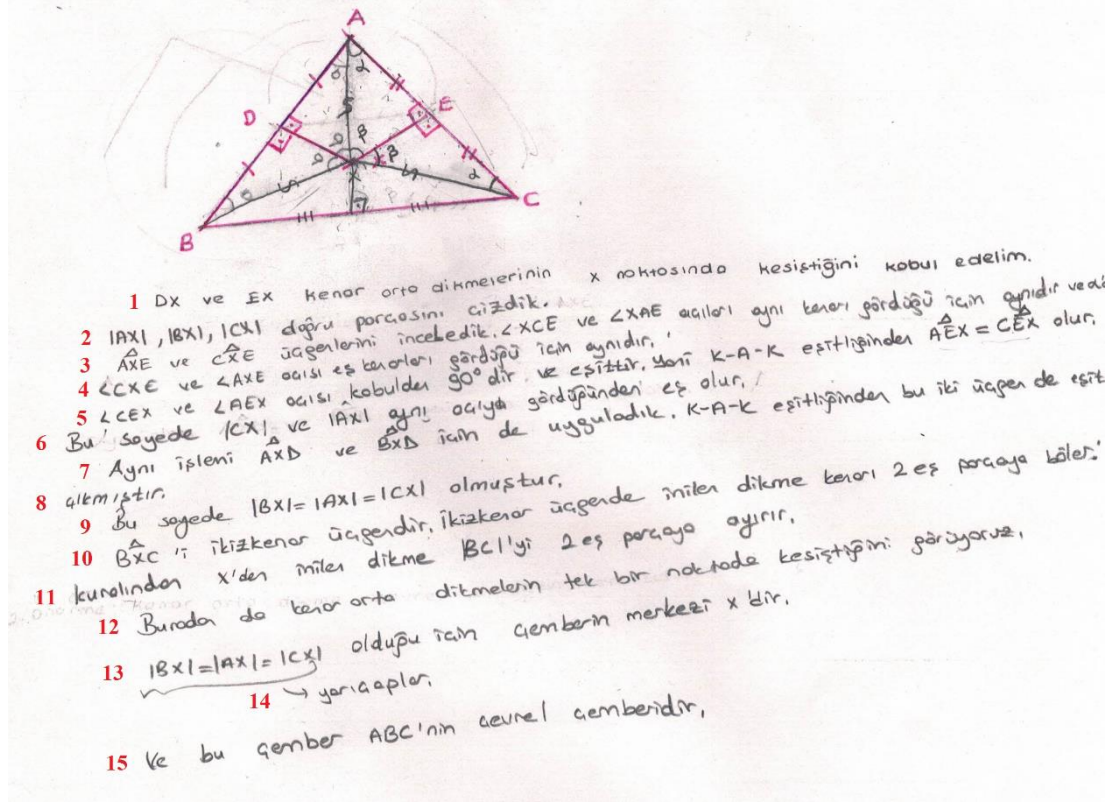 A
D
E
X
B
C
1 DX ve EX kenar orta dikmelerinin x noktasında kesiştiğini kabul edelim.
2 |AX|, |BX|, |CX| doğru parçasını çizdik.
3 AXE ve CXE üçgenlerini inceledik. <XCE ve <XAE açıları aynı kenarı gördüğü için aynıdır
4 <CXE ve <AXE açısı eş kenarları gördüğü için aynıdır.
5 <CEX ve <AEX açısı kabulden 90° dir. ve eşittir. Yani K-A-K eşitliğinden AEX = CEX olur.
6 Bu sayede |CX| ve |AX| aynı açıyı gördüğünden eş olur.
7 Aynı işlemi AXD ve BXD için de uyguladık. K-A-K eşitliğinden bu iki üçgen de eşit
8 çıkmıştır.
9 Bu sayede |BX|=|AX|=|CX| olmuştur.
10 BXC 'i ikizkenar üçgendir. İkizkenar üçgende inilen dikme kenarı 2 eş parçaya böler.'
11 kuralından X'den inilen dikme |BC|'yi 2 eş parçaya ayırır.
12 Burada da kenar orta dikmelerin tek bir noktada kesiştiğini görüyoruz.
13 |BX|=|AX|=|CX| olduğu için çemberin merkezi x'dir.
14 → yarıçaplar.
15 Ve bu çember ABC'nin çevrel çemberidir.